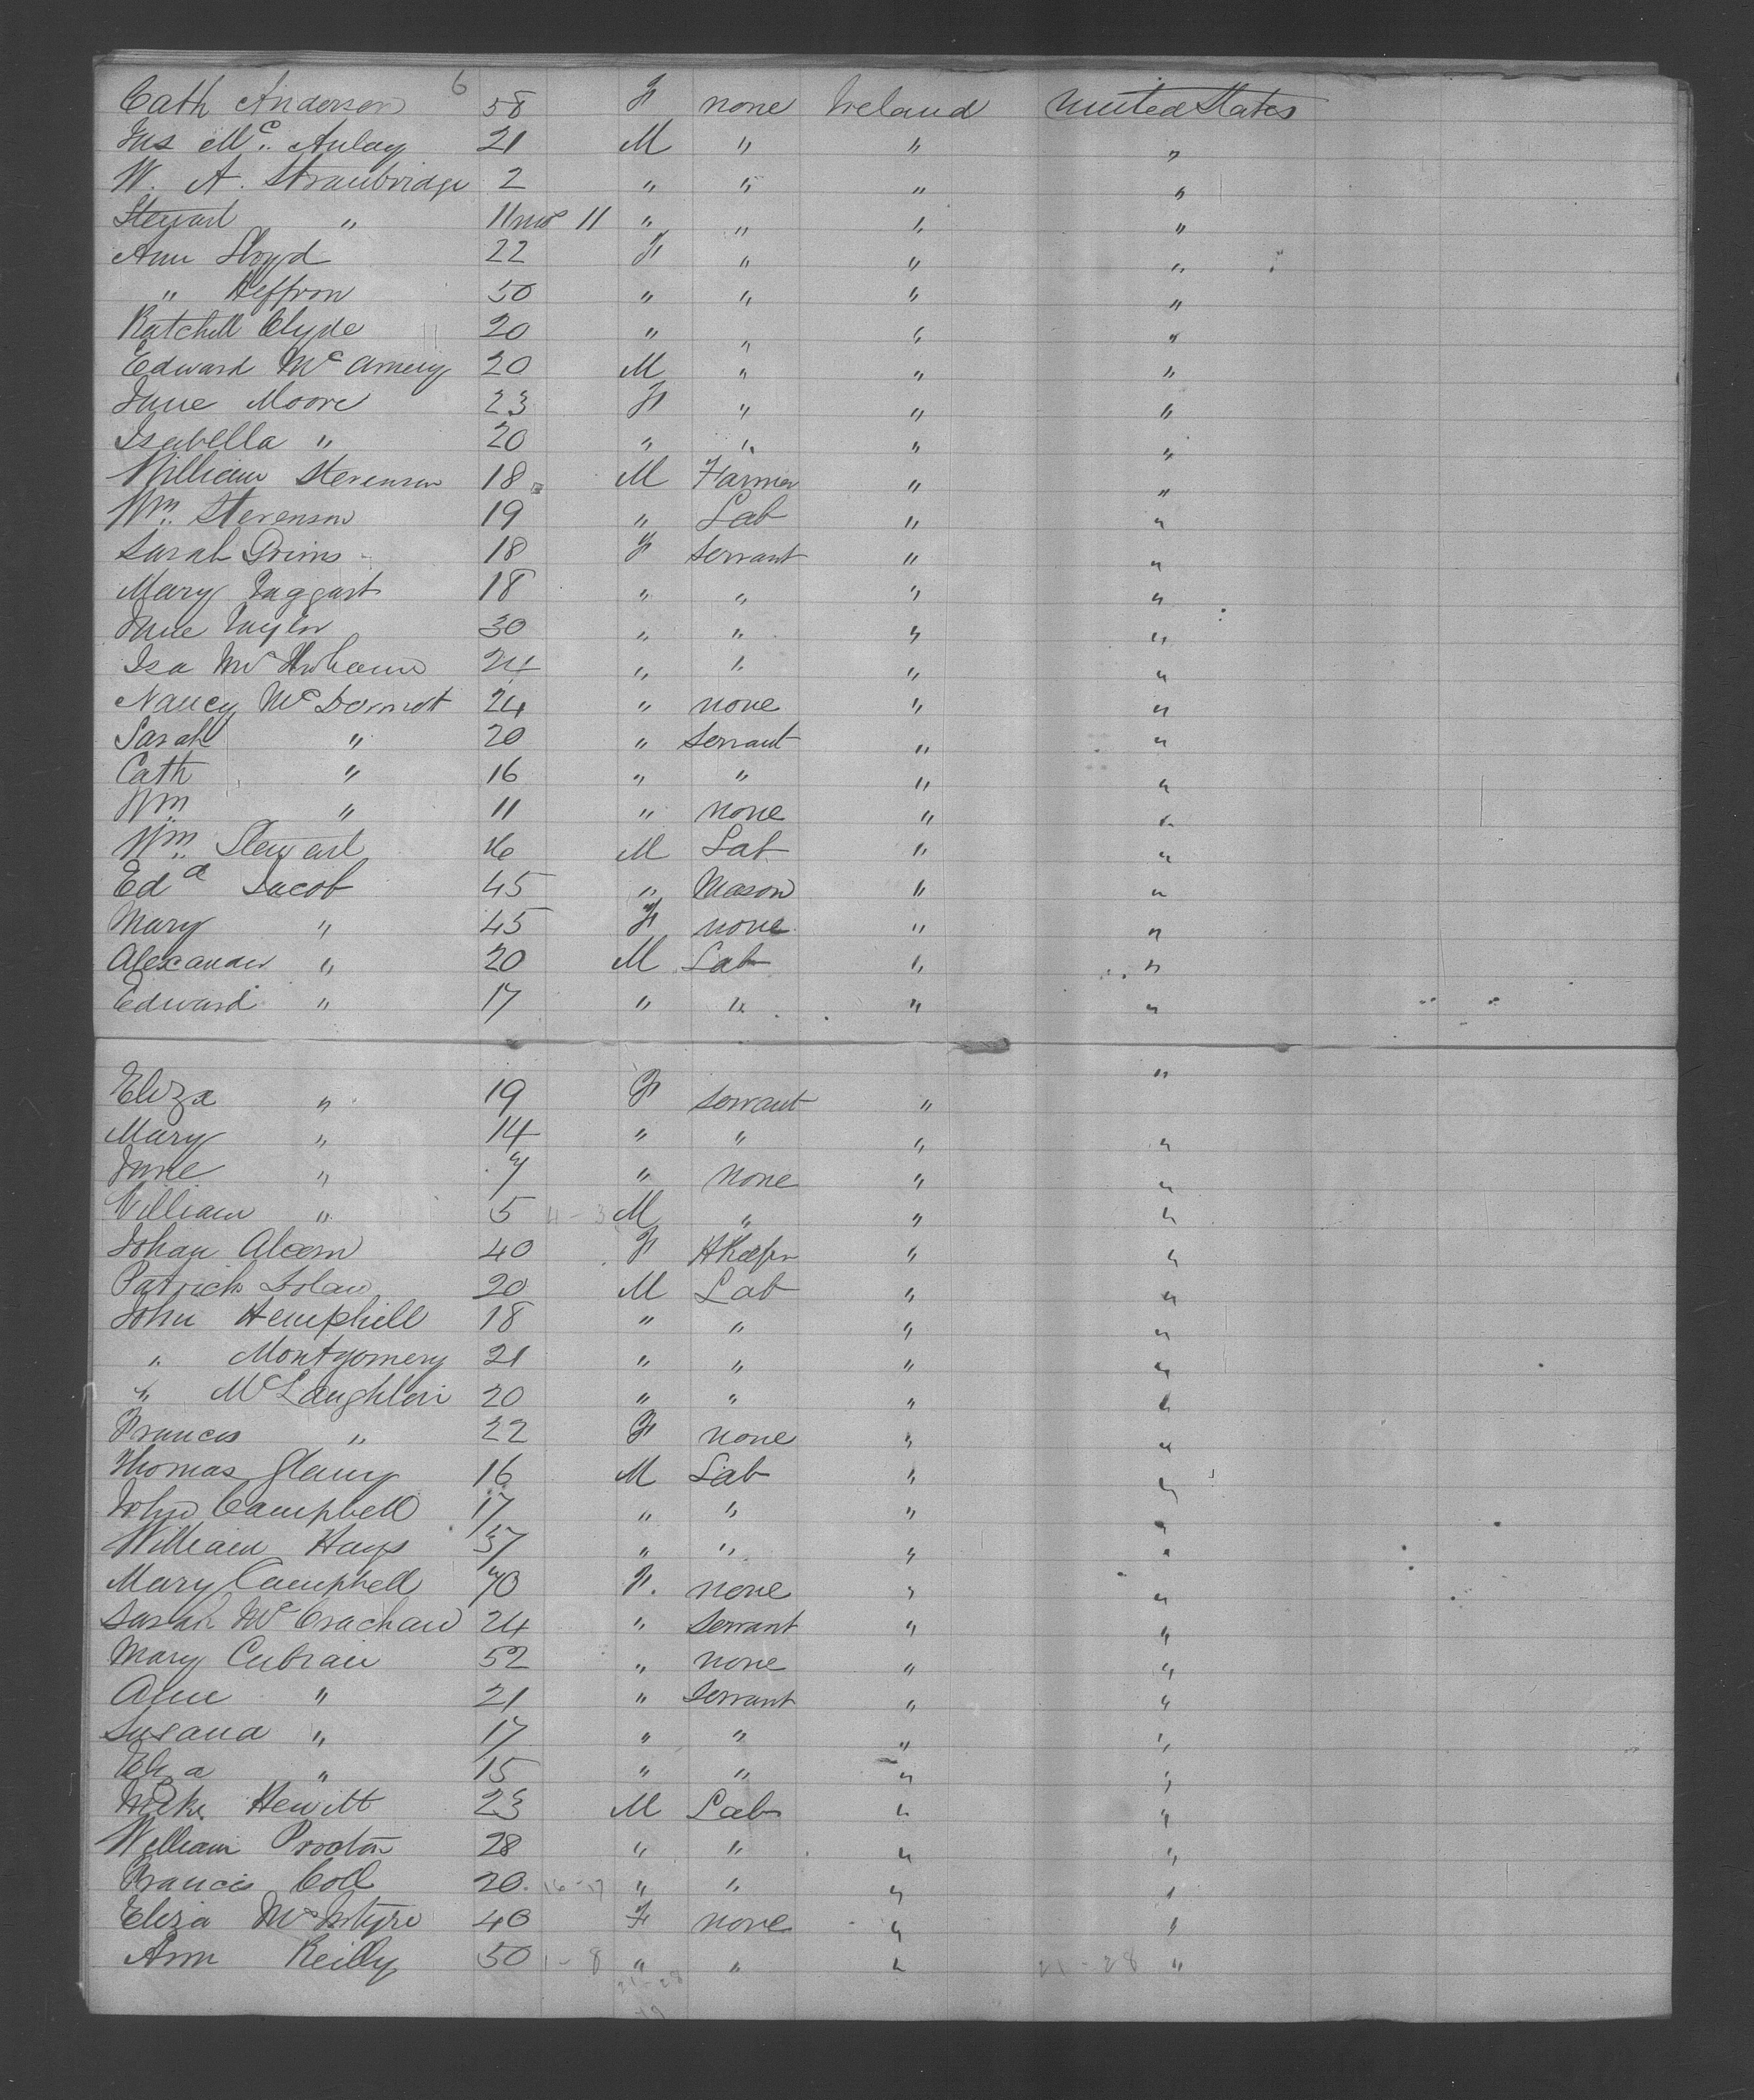 6
Cath Anderson 58 F none Ireland United States
Jas Mc. Aulay 21 M " " "
W. A. Strawbridge 2 " " " "
Stewart " 11 mos 11 " " " "
Ann Lloyd 22 F " " "
" Heffron 50 " " " "
Ratchell Clyde 20 " " " "
Edward Mc 20 M " " "
Jane Moore 23 F " " "
Isabella " 20 " " " "
William Stevenson 18 M Farmer " "
Wm. Stevenson 19 " Lab " "
Sarah Grims 18 F Servant " "
Mary Taggart 18 " " " "
Jane Taylor 30 " " " "
Isa Mc 24 " " " "
Nancy McDormot 24 " none " "
Sarah " 20 " Servant " "
Cath " 16 " " " "
Wm " 11 " none " "
Wm. Stewart 16 M Lab " "
Edd Jacob 45 " Mason " "
Mary " 45 F none " "
Alexander " 20 M Lab " "
Edward " 17 " " " "
Eliza " 19 F Servant " "
Mary " 14 " " " "
Jane " 7 " none " "
William " 5 M " " "
Johan Alcorn 40 F HKeepr " "
Patrick Dolan 20 M Lab " "
John Hemphill 18 " " " "
" Montgomery 21 " " " "
" McLaughlin 20 " " " "
Francis " 22 F none " "
Thomas Glancy 16 M Lab " "
John Campbell 17 " " " "
William Hays 37 " " " "
Mary Campbell 70 F. none " "
Sarah McCrachan 24 " Servant " "
Mary Cubrain 52 " none " "
Ann " 21 " Servant " "
Susana " 17 " " " "
Eliza " 15 " " " "
Mike Hewitt 23 M Lab " "
William Procton 28 " " " "
Francis Coll 20 16-17 " " " "
Eliza McIntyre 40 F none " "
Ann Reilly 50 1-8 " " " 21-28 "
21-28